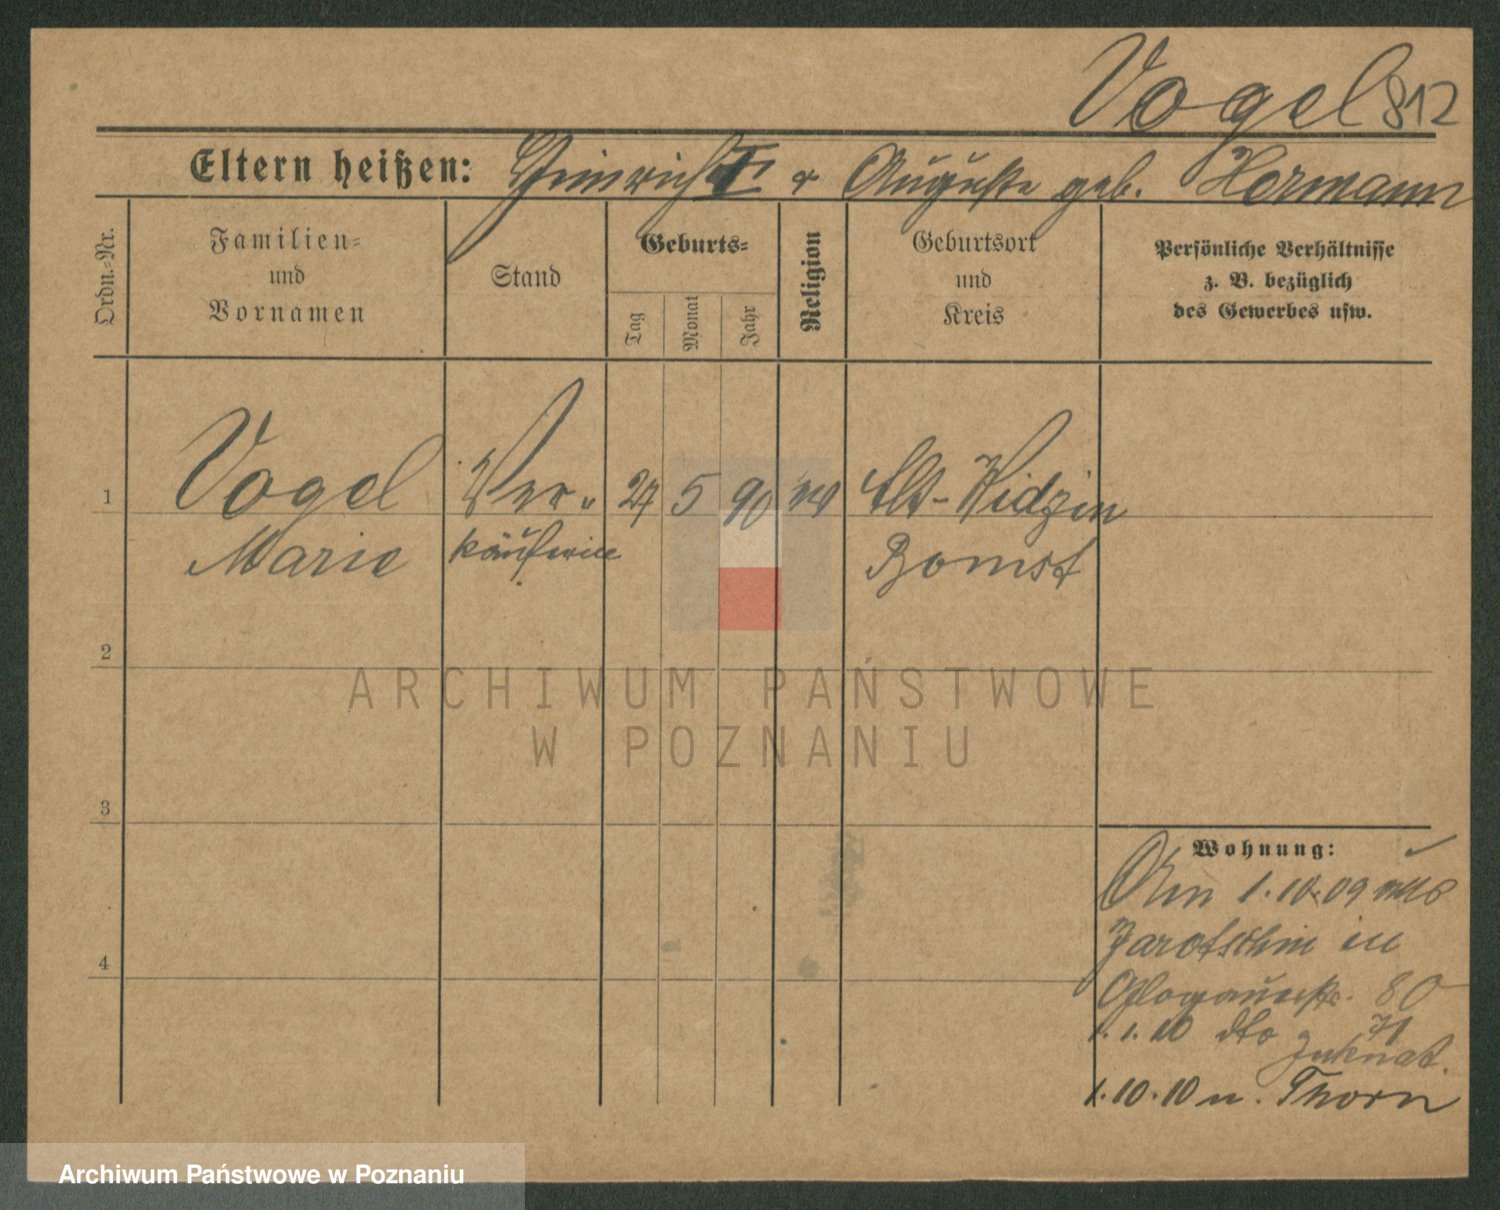 Vogel 812
Eltern heißen: Heinrich I & Auguste geb. Hermann
Ordn.-Nr.
Familien-
und
Vornamen
Stand
Geburts-
Tag
Monat
Jahr
Religion
Geburtsort
und
Kreis
Persönliche Verhältnisse
z. B. bezüglich
des Gewerbes usw.
1
Vogel
Marie
Ver-
käuferin
27 5 90
Alt-Widzim
Bomst
2
ARCHIWUM PAŃSTWOWE
W POZNANIU
3
4
Wohnung:
Am 1.10.09 aus
Jarotschin in
Glogauerstr. 80
1.1.10 dto 71
1.10.10 n. Thorn
Archiwum Państwowe w Poznaniu